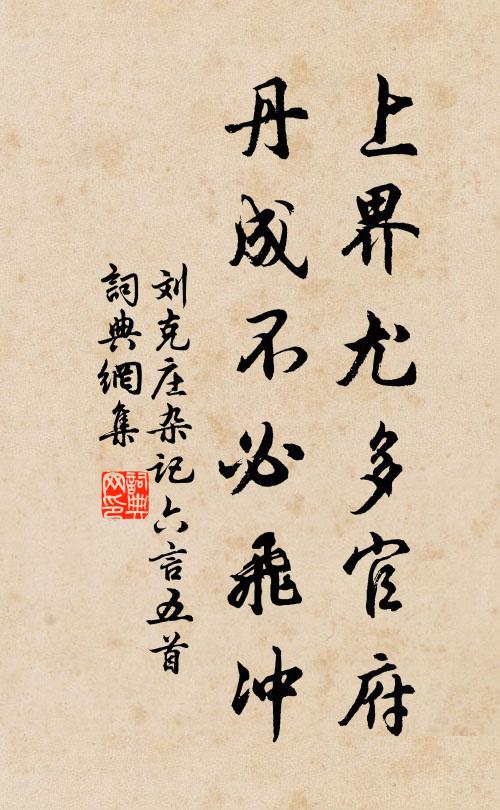 上界尤多官府
丹成不必飛沖
刘克庄杂记六言五首
詞典網集
詞典
网印